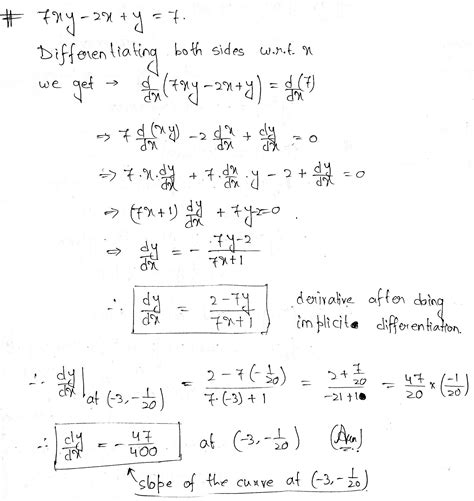 # 7xy - 2x + y = 7.
Differentiating both sides w.r.t. x
we get → d/dx (7xy - 2x + y) = d/dx (7)
⇒ 7 d/dx (xy) - 2 dx/dx + dy/dx = 0
⇒ 7.x.dy/dx + 7.dx/dx.y - 2 + dy/dx = 0
⇒ (7x+1) dy/dx + 7y-2=0.
⇒ dy/dx = - (7y-2)/(7x+1)
∴ dy/dx = (2-7y)/(7x+1) , derivative after doing
implicit differentiation.
∴ dy/dx | at (-3, -1/20) = (2-7(-1/20))/(7.(-3)+1) = (2+7/20)/(-21+1) = 47/20 × (-1/20)
∴ dy/dx = - 47/400 at (-3, -1/20) (Ans)
slope of the curve at (-3, -1/20)